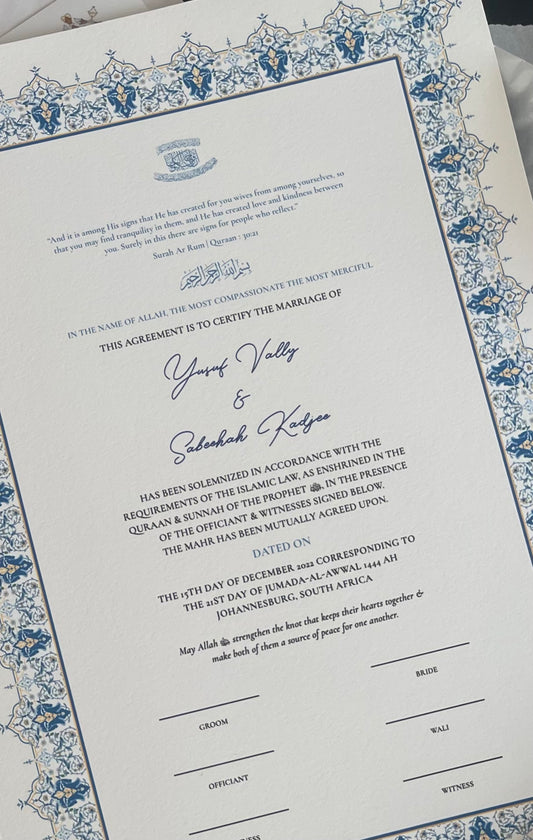 "And it is among His signs that He has created for you wives from among yourselves, so
that you may find tranquility in them, and He has created love and kindness between
you. Surely in this there are signs for people who reflect."
Surah Ar Rum | Quraan : 30:21
بسم الله الرحمن الرحيم
IN THE NAME OF ALLAH, THE MOST COMPASSIONATE THE MOST MERCIFUL
THIS AGREEMENT IS TO CERTIFY THE MARRIAGE OF
Yusuf Vally
&
Sabeehah Kadjee
HAS BEEN SOLEMNIZED IN ACCORDANCE WITH THE
REQUIREMENTS OF THE ISLAMIC LAW, AS ENSHRINED IN THE
QURAAN & SUNNAH OF THE PROPHET ﷺ, IN THE PRESENCE
OF THE OFFICIANT & WITNESSES SIGNED BELOW.
THE MAHR HAS BEEN MUTUALLY AGREED UPON.
DATED ON
THE 15TH DAY OF DECEMBER 2022 CORRESPONDING TO
THE 21ST DAY OF JUMADA-AL-AWWAL 1444 AH
JOHANNESBURG, SOUTH AFRICA
May Allah strengthen the knot that keeps their hearts together &
make both of them a source of peace for one another.
GROOM
BRIDE
OFFICIANT
WALI
WITNESS